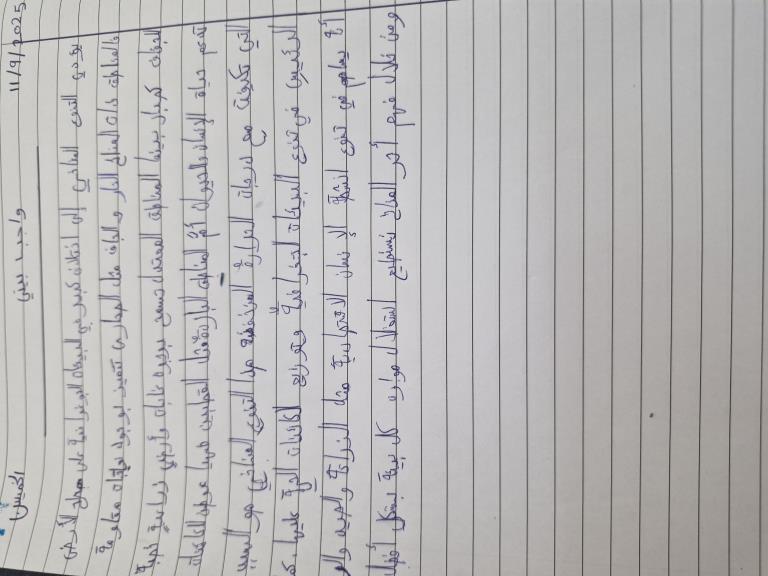 الخميس واجب بيتي 11/9/2025
يؤدي التنوع المناخي إلى اختلاف كبير في البيئات الجغرافية على سطح الأرض
فالمناطق ذات المناخ الحار والجاف مثل الصحاري تتميز بوجود نباتات مقاومة
الجفاف كبيرا بينما المناطق المعتدلة تسمح بوجود غابات وأراضي زراعية خصبة
تدعم حياة الإنسان والحيوان أما المناطق الباردة مثل القطبين فيها بعض الكائنات
التي تكيفت مع درجات الحرارة المنخفضة هذا التنوع المناخي هو السبب
الرئيسي في تنوع البيئات الجغرافية وتوزع الكائنات الحية عليها ك
أنه يساهم في تنوع أنشطة الإنسان الاقتصادية مثل الزراعة والرعي وال
ومن خلال فهم أثر المناخ نستطيع استغلال موارد كل بيئة بشكل أفضل